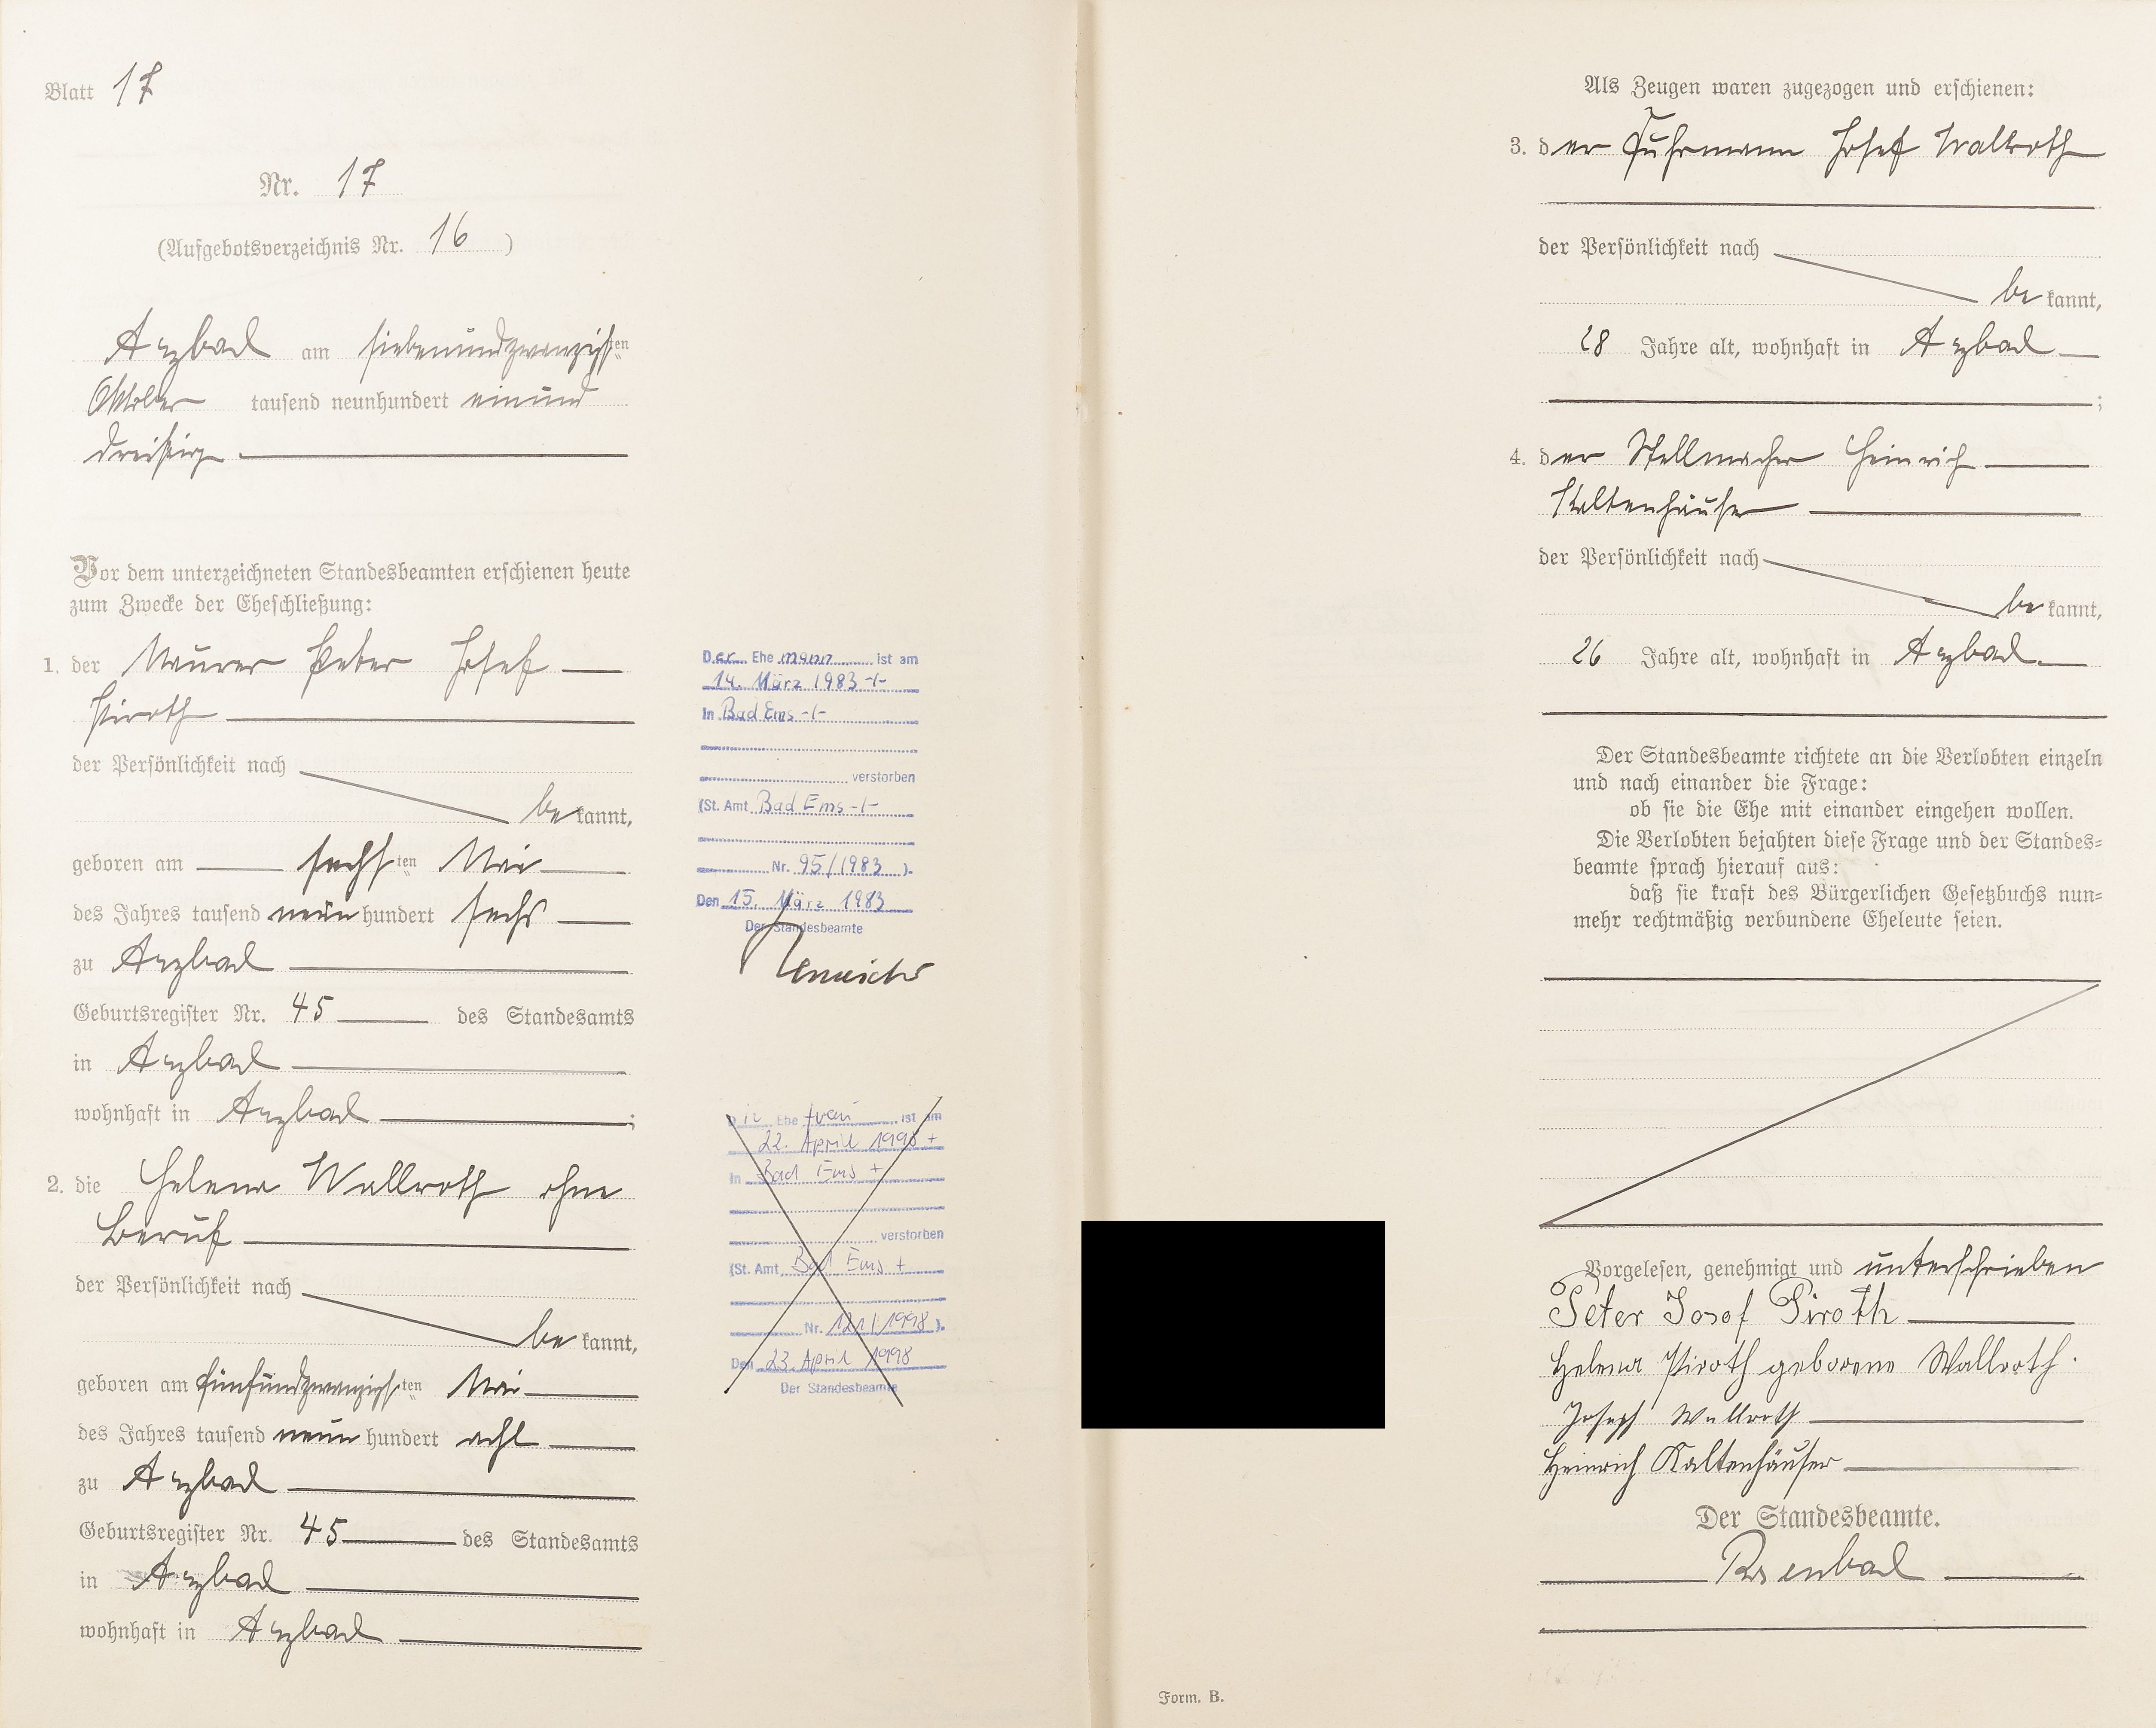 Blatt 17
Nr. 17
(Aufgebotsverzeichnis Nr. 16)
Arzbach am siebenundzwanzigsten
Oktober tausend neunhundert einund
dreißig
Vor dem unterzeichneten Standesbeamten erschienen heute
zum Zwecke der Eheschließung:
1. der Maurer Peter Josef
Piroth
der Persönlichkeit nach
bekannt,
geboren am sechsten Mai
des Jahres tausend neunhundert sechs
zu Arzbach
Geburtsregister Nr. 45 des Standesamts
in Arzbach
wohnhaft in Arzbach;
2. die Helena Wallroth ohne
Beruf
der Persönlichkeit nach
bekannt,
geboren am fünfundzwanzigsten Mai
des Jahres tausend neunhundert acht
zu Arzbach
Geburtsregister Nr. 45 des Standesamts
in Arzbach
wohnhaft in Arzbach
Der Ehemann ist am
14. März 1983 -/-
in Bad Ems -/-
verstorben
(St. Amt Bad Ems -/-
Nr. 95/1983 ).
Den 15. März 1983
Der Standesbeamte
Die Ehefrau ist am
22. April 1998 +
in Bad Ems +
verstorben
(St. Amt Bad Ems +
Nr. 121/1998 ).
Den 23. April 1998
Der Standesbeamte
Als Zeugen waren zugezogen und erschienen:
3. der Fuhrmann Josef Wallroth
der Persönlichkeit nach
bekannt,
28 Jahre alt, wohnhaft in Arzbach
;
4. der Stellmacher Heinrich
Kaltenhäuser
der Persönlichkeit nach
bekannt,
26 Jahre alt, wohnhaft in Arzbach
Der Standesbeamte richtete an die Verlobten einzeln
und nach einander die Frage:
ob sie die Ehe mit einander eingehen wollen.
Die Verlobten bejahten diese Frage und der Standes=
beamte sprach hierauf aus:
daß sie kraft des Bürgerlichen Gesetzbuchs nun=
mehr rechtmäßig verbundene Eheleute seien.
Vorgelesen, genehmigt und unterschrieben
Peter Josef Piroth
Helena Piroth geborene Wallroth.
Joseph Wallroth
Heinrich Kaltenhäuser
Der Standesbeamte.
Form. B.